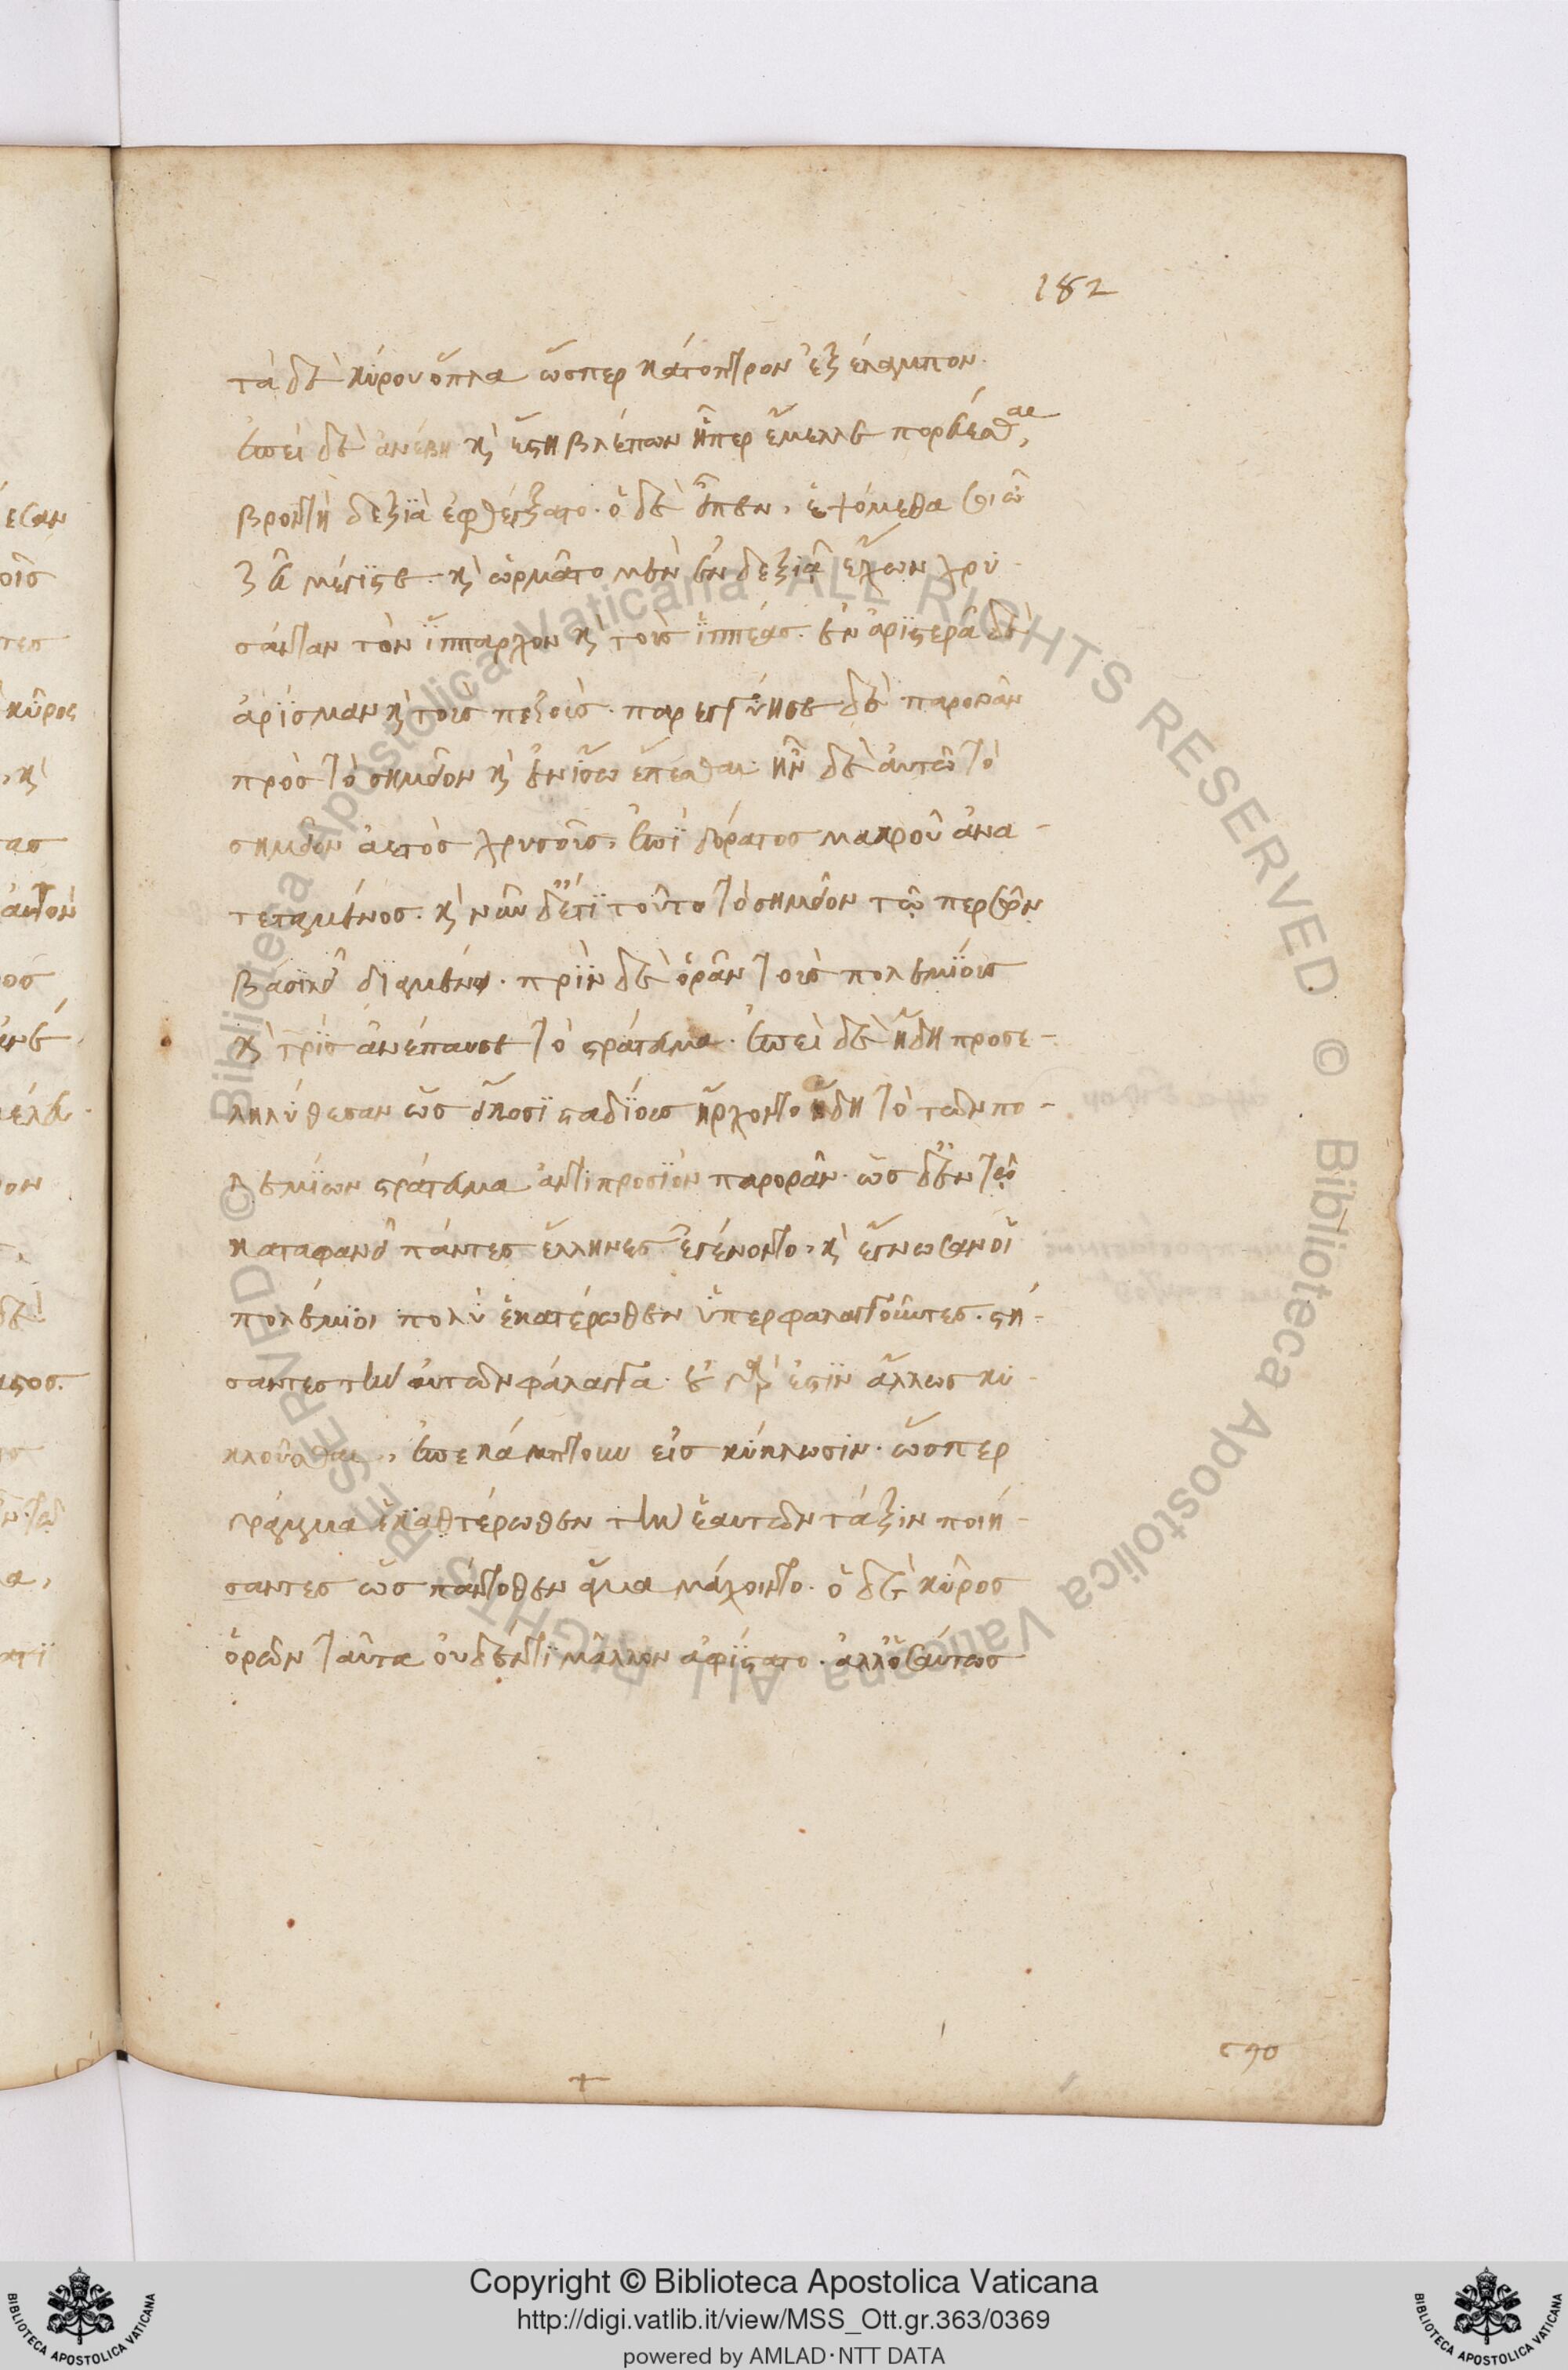 182
τὰ δὲ κύρου ὅπλα ὥσπερ κάτοπτρον ἐξέλαμπον.
ἐπεὶ δὲ ἀνέβη κὶ ἔστη βλέπων ᾗπερ ἔμελλε πορεύεσθαι,
βροντὴ δεξιὰ ἐφθέγξατο. ὁ δὲ εἶπεν, ἑψόμεθα σοι ὦ
ζεῦ μέγιστε. κὶ ὡρμᾶτο μὲν ἐν δεξιᾷ ἔχων χρυ-
σάνταν τὸν ἵππαρχον κὶ τοὺς ἱππέας. ἐν ἀριστερᾷ δὲ
ἀρίσμαν κὶ τοὺς πεζούς. παρεγγύησε δὲ παρορᾶν
πρὸς τὸ σημεῖον κὶ ἐν ἴσω ἕπεσθαι. ἦν δὲ αὐτῶ τὸ
σημεῖον ἀετὸς χρυσοῦς, ἐπὶ δόρατος μακροῦ ἀνα-
τεταμένος. κὶ νῦν δ' ἔτι τοῦτο τὸ σημεῖον τῶ περσῶν
βασιλεῖ διαμένει. πρὶν δὲ ὁρᾶν τοὺς πολεμίους
κὶ τρὶς ἀνέπαυσε τὸ στράτευμα. ἐπεὶ δὲ ἤδη προσε-
ληλύθεσαν ὡς εἴκοσι σταδίους ἤρχοντο ἤδη τὸ τῶν πο-
λεμίων στράτευμα ἀντιπροσιὸν παρορᾶν. ὡς δ' ἐν τῶ
καταφανεῖ πάντες ἕλληνες ἐγένοντο, κὶ ἔγνωσαν οἱ
πολέμιοι πολὺ ἑκατέρωθεν ὑπερφαλαγγοῦντες. στή-
σαντες τὴν αὐτῶν φάλαγγα. οὐ γὰρ ἔστιν ἄλλως κυ-
κλοῦσθαι, ἐπεκάμπτουν εἰς κύκλωσιν. ὥσπερ
γράμμα ἑκατέρωθεν τὴν ἑαυτῶν τάξιν ποιή-
σαντες ὡς πάντοθεν ἅμα μάχοιντο. ὁ δὲ κῦρος
ὁρῶν ταῦτα οὐδέν τι μᾶλλον ἀφίστατο. ἀλλ' ὡσαύτως
Copyright © Biblioteca Apostolica Vaticana
http://digi.vatlib.it/view/MSS_Ott.gr.363/0369
powered by AMLAD·NTT DATA